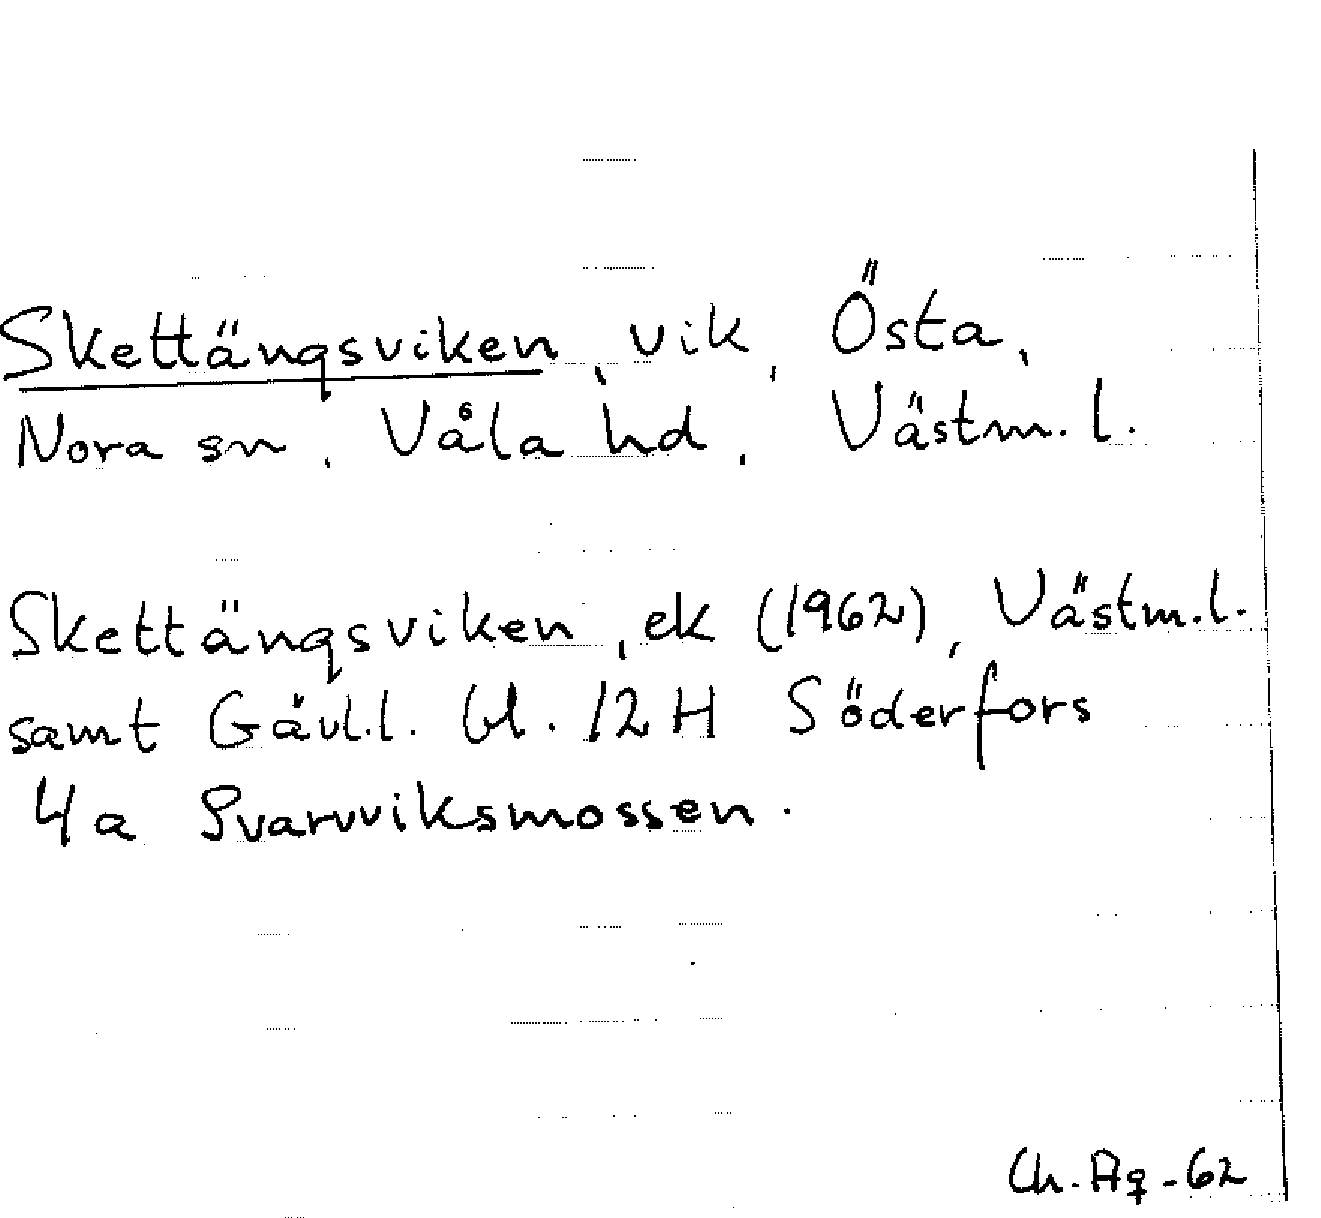 Skettängsviken, vik, Östa,
Nora sn, Våla hd, Västm. l.
Skettängsviken, ek (1962), Västm.l.
samt Gävl.l. bl. 12 H Söderfors
4a Svarvviksmossen.
Ch. Ag -62